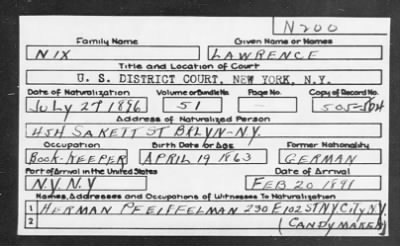 N200
Family Name Given Name or Names
NIX LAWRENCE
Title and Location of Court
U. S. DISTRICT COURT, NEW YORK, N.Y.
Date of Naturalization Volume or Bundle No. Page No. Copy of Record No.
JULY 27 1896 51
Address of Naturalized Person
454 SAKETT ST BKLYN-N.Y.
Occupation Birth Date or Age Former Nationality
BOOK-KEEPER APRIL 19 1863 GERMAN
Port of Arrival in the United States Date of Arrival
N.Y. N.Y FEB 20 1881
Names, Addresses and Occupations of Witnesses To Naturalization
1 HERMAN PFEIFFELMAN 230 E 102 ST N.Y. CITY N.Y.
2 (CANDY MAKER)